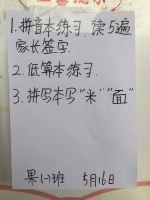 1.拼音本练习.读5遍
家长签字.
2.低算本练习.
3.拼写本写"米""面"
果(一)班 5月16日